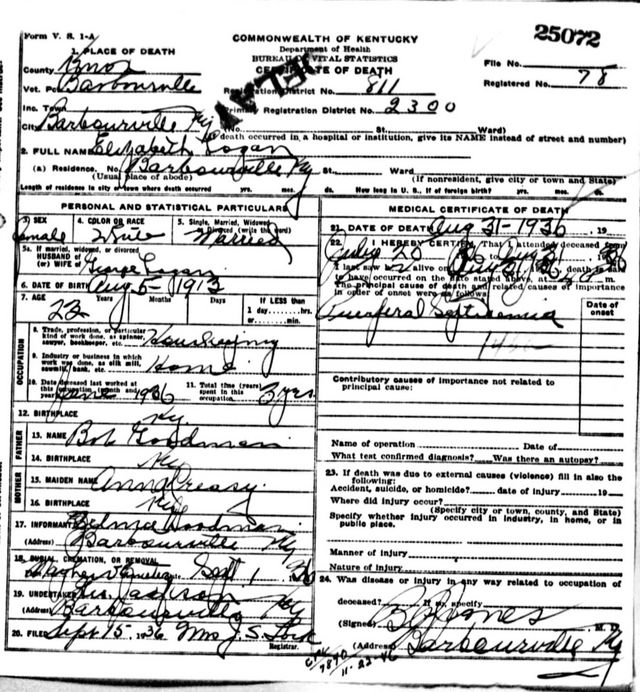 Form V. S. 1-A
COMMONWEALTH OF KENTUCKY
Department of Health
BUREAU OF VITAL STATISTICS
CERTIFICATE OF DEATH
25072
File No.
Registered No. 78
1. PLACE OF DEATH
County Knox
Vot. Barbourville
Registration District No. 811
Inc. Town
Primary Registration District No. 2300
City Barbourville Ky No. St. Ward)
(If death occurred in a hospital or institution, give its NAME instead of street and number)
2. FULL NAME Elizabeth Logan
(a) Residence. No. Barbourville Ky St. Ward
(Usual place of abode) (If nonresident, give city or town and State)
Length of residence in city or town where death occurred yrs. mos. ds. How long in U. S., if of foreign birth? yrs. mos. ds.
PERSONAL AND STATISTICAL PARTICULARS
3. SEX Female
4. COLOR OR RACE White
5. Single, Married, Widowed, or Divorced (write the word) Married
5a. If married, widowed, or divorced
HUSBAND of
(or) WIFE of George Logan
6. DATE OF BIRTH Aug 5 - 1913
7. AGE 23 Years Months Days
If LESS than
1 day, hrs.
or min.
OCCUPATION
8. Trade, profession, or particular kind of work done, as spinner, sawyer, bookkeeper, etc. Housekeeping
9. Industry or business in which work was done, as silk mill, sawmill, bank, etc. Home
10. Date deceased last worked at this occupation (month and year) June 1936
11. Total time (years) spent in this occupation 3 yrs
12. BIRTHPLACE Ky.
FATHER
13. NAME Bob Goodman
14. BIRTHPLACE Ky
MOTHER
15. MAIDEN NAME Ann
16. BIRTHPLACE Ky
17. INFORMANT
(Address) Barbourville Ky
18. BURIAL, CREMATION, OR REMOVAL
Sept 1 1936
19. UNDERTAKER Jackson
(Address) Barbourville Ky
20. FILED Sept 15, 1936 Mrs J. S. Lock
Registrar.
MEDICAL CERTIFICATE OF DEATH
21. DATE OF DEATH Aug 31 - 1936, 19
22. I HEREBY CERTIFY, That I attended deceased from
July 20 36 to Aug 31 36
I last saw alive on Aug 31, 36 death is said
to have occurred on the date stated above, at m.
The principal cause of death and related causes of importance
in order of onset were as follows:
Date of onset
Puerperal Septicemia
Contributory causes of importance not related to
principal cause:
Name of operation Date of
What test confirmed diagnosis? Was there an autopsy?
23. If death was due to external causes (violence) fill in also the
following:
Accident, suicide, or homicide? date of injury 19
Where did injury occur?
(Specify city or town, county, and State)
Specify whether injury occurred in industry, in home, or in
public place.
Manner of injury
Nature of injury
24. Was disease or injury in any way related to occupation of
deceased? If so, specify
(Signed) Jones M. D.
(Address) Barbourville Ky
11-23-46